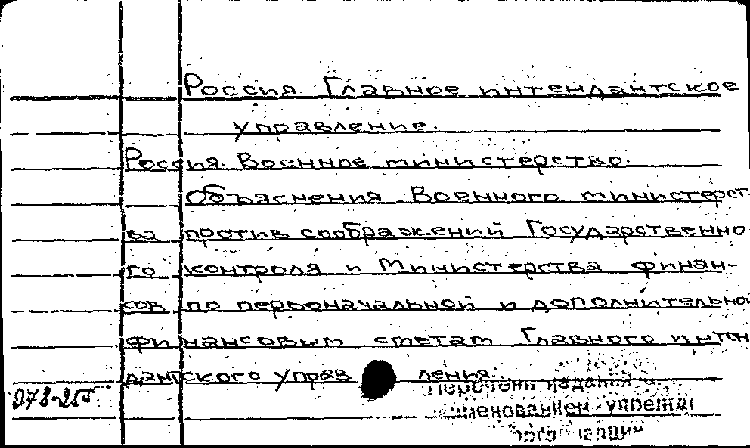 Россия. Главное интендантское
управление.
Россия. Военное министерство.
Объяснения Военного министерст-
ва против соображений Государственно-
го контроля и Министерства финан-
сов по первоначальной и дополнительной
финансовым сметам Главного интен-
дантского управления.
Перечень издания